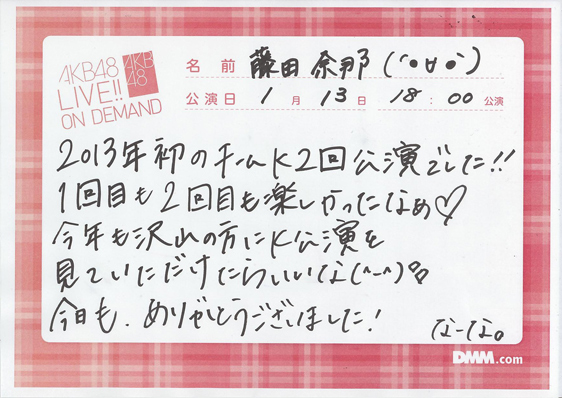 AKB48
LIVE!!
ON DEMAND
AKB
48
名前 藤田奈那(´•ㅂ•`)
公演日 1月13日 18:00公演
2013年初のチームK2回公演でした!!
1回目も2回目も楽しかったなぁ♡
今年も沢山の方にK公演を
見ていただけたらいいな(^-^)
今日も、ありがとうございました!
なーな。
DMM.com